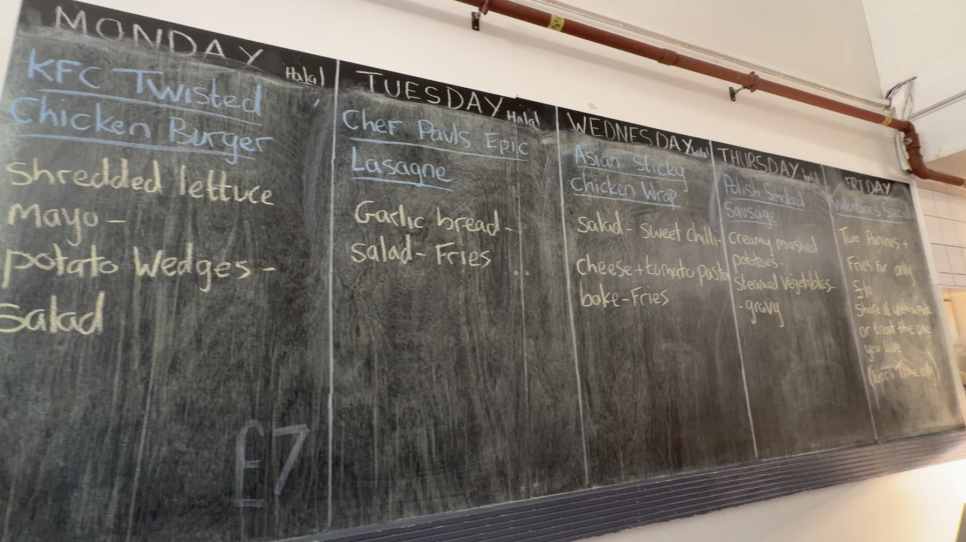 MONDAY Halal
KFC Twisted
Chicken Burger
shredded lettuce
Mayo -
potato Wedges -
Salad
£7
TUESDAY Halal
Chef Pauls Epic
Lasagne
Garlic bread -
salad - Fries
WEDNESDAY
Asian Sticky
Chicken Wrap
salad - sweet chilli -
cheese + tomato pasta
bake - Fries
THURSDAY
Polish Smoked
Sausage
creamy mashed
potatoes -
Steamed Vegetables -
- gravy
FRIDAY
Valentines Special
Two Paninis +
Fries for only
or treat the one
you love